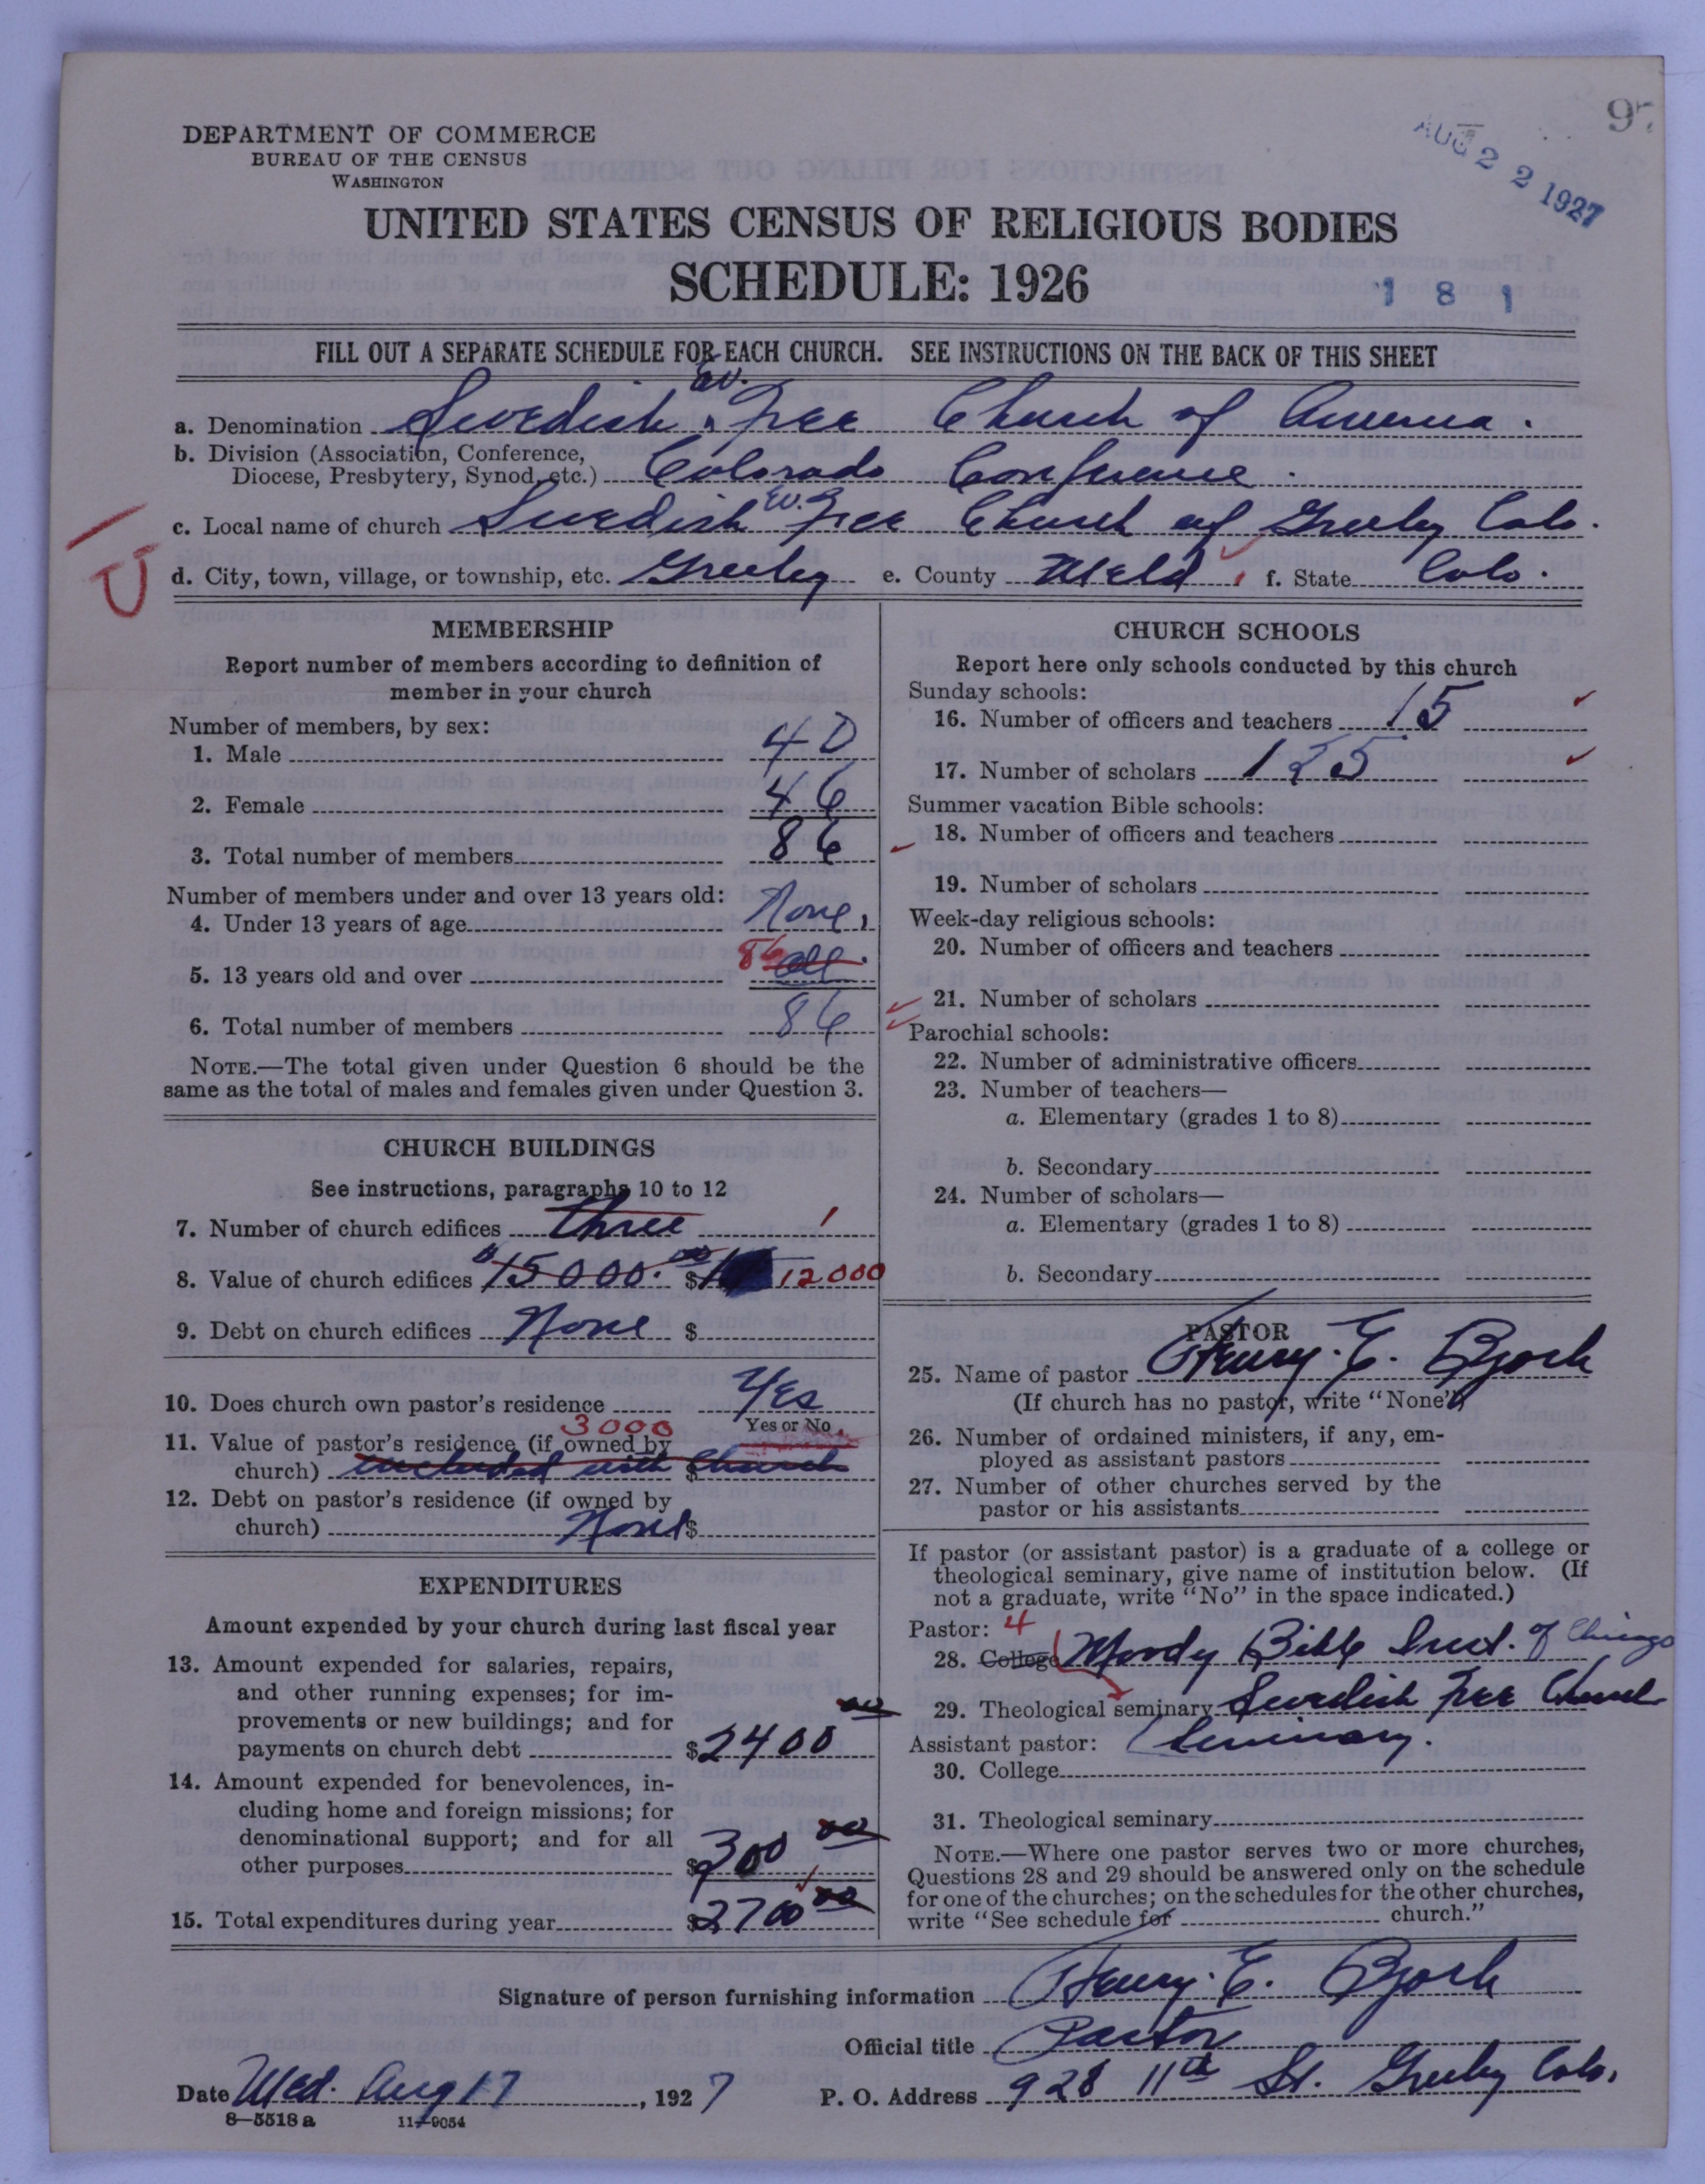 DEPARTMENT OF COMMERCE
BUREAU OF THE CENSUS
WASHINGTON
AUG 22 1927
UNITED STATES CENSUS OF RELIGIOUS BODIES
SCHEDULE: 1926
1 8 1
FILL OUT A SEPARATE SCHEDULE FOR EACH CHURCH. SEE INSTRUCTIONS ON THE BACK OF THIS SHEET
a. Denomination Swedish Ev. Free Church of America.
b. Division (Association, Conference,
Diocese, Presbytery, Synod, etc.) Colorado Conference.
c. Local name of church Swedish Ev. Free Church of Greeley Colo.
d. City, town, village, or township, etc. Greeley e. County Weld f. State Colo.
MEMBERSHIP
Report number of members according to definition of
member in your church
Number of members, by sex:
1. Male 40
2. Female 46
3. Total number of members 86
Number of members under and over 13 years old:
4. Under 13 years of age None.
5. 13 years old and over 86 all.
6. Total number of members 86
NOTE.—The total given under Question 6 should be the
same as the total of males and females given under Question 3.
CHURCH BUILDINGS
See instructions, paragraphs 10 to 12
7. Number of church edifices three 1
8. Value of church edifices $15000.00 $ 12000
9. Debt on church edifices None $
10. Does church own pastor's residence Yes
Yes or No
3000
11. Value of pastor's residence (if owned by
church) included with $ church
12. Debt on pastor's residence (if owned by
church) None $
EXPENDITURES
Amount expended by your church during last fiscal year
13. Amount expended for salaries, repairs,
and other running expenses; for im-
provements or new buildings; and for
payments on church debt $2400 00
14. Amount expended for benevolences, in-
cluding home and foreign missions; for
denominational support; and for all
other purposes $300 00
15. Total expenditures during year $2700 00
CHURCH SCHOOLS
Report here only schools conducted by this church
Sunday schools:
16. Number of officers and teachers 15
17. Number of scholars 125
Summer vacation Bible schools:
18. Number of officers and teachers
19. Number of scholars
Week-day religious schools:
20. Number of officers and teachers
21. Number of scholars
Parochial schools:
22. Number of administrative officers
23. Number of teachers—
a. Elementary (grades 1 to 8)
b. Secondary
24. Number of scholars—
a. Elementary (grades 1 to 8)
b. Secondary
PASTOR
25. Name of pastor Henry. E. Bjork
(If church has no pastor, write "None")
26. Number of ordained ministers, if any, em-
ployed as assistant pastors
27. Number of other churches served by the
pastor or his assistants
If pastor (or assistant pastor) is a graduate of a college or
theological seminary, give name of institution below. (If
not a graduate, write "No" in the space indicated.)
Pastor: 4
28. College Moody Bible Inst. of Chicago
29. Theological seminary Swedish Free Church
Assistant pastor: Seminary.
30. College
31. Theological seminary
NOTE.—Where one pastor serves two or more churches,
Questions 28 and 29 should be answered only on the schedule
for one of the churches; on the schedules for the other churches,
write "See schedule for church."
Signature of person furnishing information Henry. E. Bjork
Official title Pastor
Date Wed. Aug 17, 1927 P. O. Address 928 11th St. Greeley Colo.
8—5518 a 11—9054